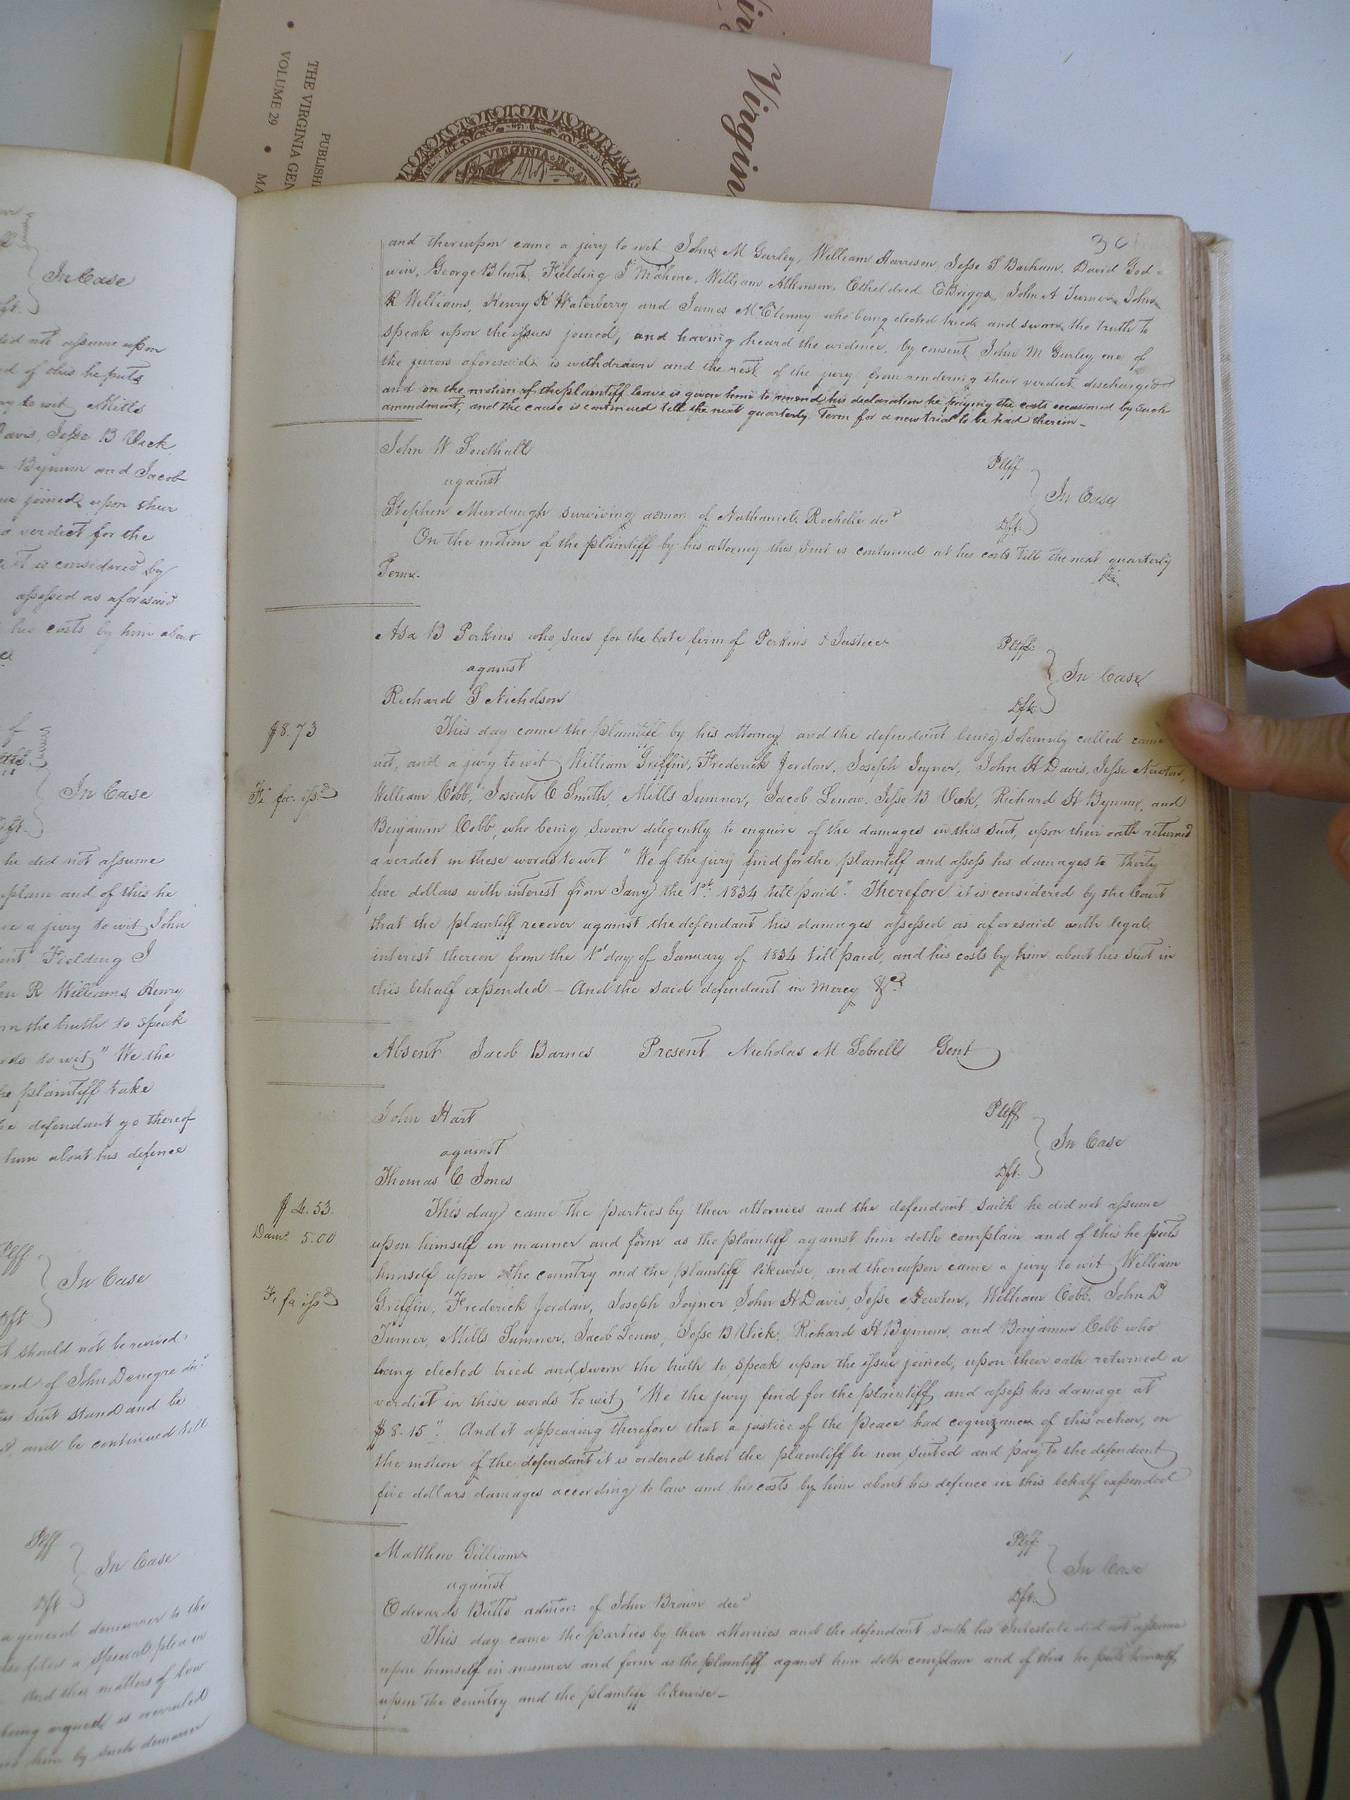 Virgin
PUBLISH
THE VIRGINIA GEN
VOLUME 29 • MA
VIRGINIA
In Case
did not assume upon
ed of this he puts
to wit Mills
Davis, Jesse B Vick
Bynum and Jacob
joined, upon their
verdict for the
it is considered by
assessed as aforesaid
his costs by him about
In Case
he did not assume
plain and of this he
a jury to wit John
Fielding J
R Williams Henry
the truth to speak
to wit "We the
plaintiff take
defendant go thereof
him about his defence
Plff
In Case
Dft
should not be revived
of John Denegre decd
suit stand and be
and be continued till
Plff
In Case
Dft
a general demurrer to the
filed a special plea in
And the matters of law
being argued is overruled
him by such demurrer
30
and thereupon came a jury to wit John M Gurley, William Harrison, Jesse S Barham, David God-
win, George Blunt, Fielding J Mahone, William Atkinson, Etheldred E Briggs, John A Turner, John
R Williams, Henry H Waterberry and James McClenny who being elected tried and sworn the truth to
speak upon the issues joined, and having heard the evidence, by consent John M Gurley one of
the jurors aforesaid is withdrawn and the rest of the jury from rendering their verdict discharged
and on the motion of the plaintiff leave is given him to amend his declaration he paying the costs occasioned by such
amendment, and the cause is continued till the next quarterly Term for a new trial to be had therein -
John W Southall Plff
against In Case
Stephen Murdaugh surviving admor. of Nathaniel Rochelle decd Dft.
On the motion of the plaintiff by his attorney this Suit is continued at his costs till the next quarterly
Term.
Asa B Perkins who sues for the late firm of Perkins & Justice Plff.
against In Case
Richard S Nicholson Dft.
$8.73 This day came the plaintiff by his attorney and the defendant being solemnly called came
not, and a jury to wit William Griffin, Frederick Jordan, Joseph Joyner, John H Davis, Jesse Newton,
Fi. fa. issd William Cobb, Josiah C Smith, Mills Sumner, Jacob Lenow, Jesse B Vick, Richard H Bynum, and
Benjamin Cobb, who being sworn diligently to enquire of the damages in this suit, upon their oath returned
a verdict in these words to wit "We of the jury find for the plaintiff and assess his damages to thirty
five dollars with interest from Jany the 1st 1834 till paid". Therefore it is considered by the Court
that the plaintiff recover against the defendant his damages assessed as aforesaid with legal
interest thereon from the 1st day of January of 1834 till paid, and his costs by him about his suit in
this behalf expended - And the said defendant in mercy &c
Absent Jacob Barnes Present Nicholas M Sebrell Gent
John Hart Plff
against In Case
Thomas C Jones Dft.
$4.53. This day came the parties by their attornies and the defendant saith he did not assume
Dam. 5.00 upon himself in manner and form as the plaintiff against him doth complain and of this he puts
himself upon the country and the plaintiff likewise, and thereupon came a jury to wit William
Fi. fa issd Griffin, Frederick Jordan, Joseph Joyner John H Davis, Jesse Newton, William Cobb, John D
Turner, Mills Sumner, Jacob Lenow, Jesse B Vick, Richard H Bynum, and Benjamin Cobb who
being elected tried and sworn the truth to speak upon the issue joined, upon their oath returned a
verdict in these words to wit "We the jury find for the plaintiff and assess his damage at
$8.15". And it appearing therefore that a justice of the peace had cognizance of this action, on
the motion of the defendant it is ordered that the plaintiff be non suited and pay to the defendant
five dollars damages according to law and his costs by him about his defence in this behalf expended
Matthew Gilliam Plff.
against In Case
Edwards Butts admor. of John Brown decd Dft.
This day came the parties by their attornies and the defendant saith his Intestate did not assume
upon himself in manner and form as the plaintiff against him doth complain and of this he puts himself
upon the country and the plaintiff likewise -